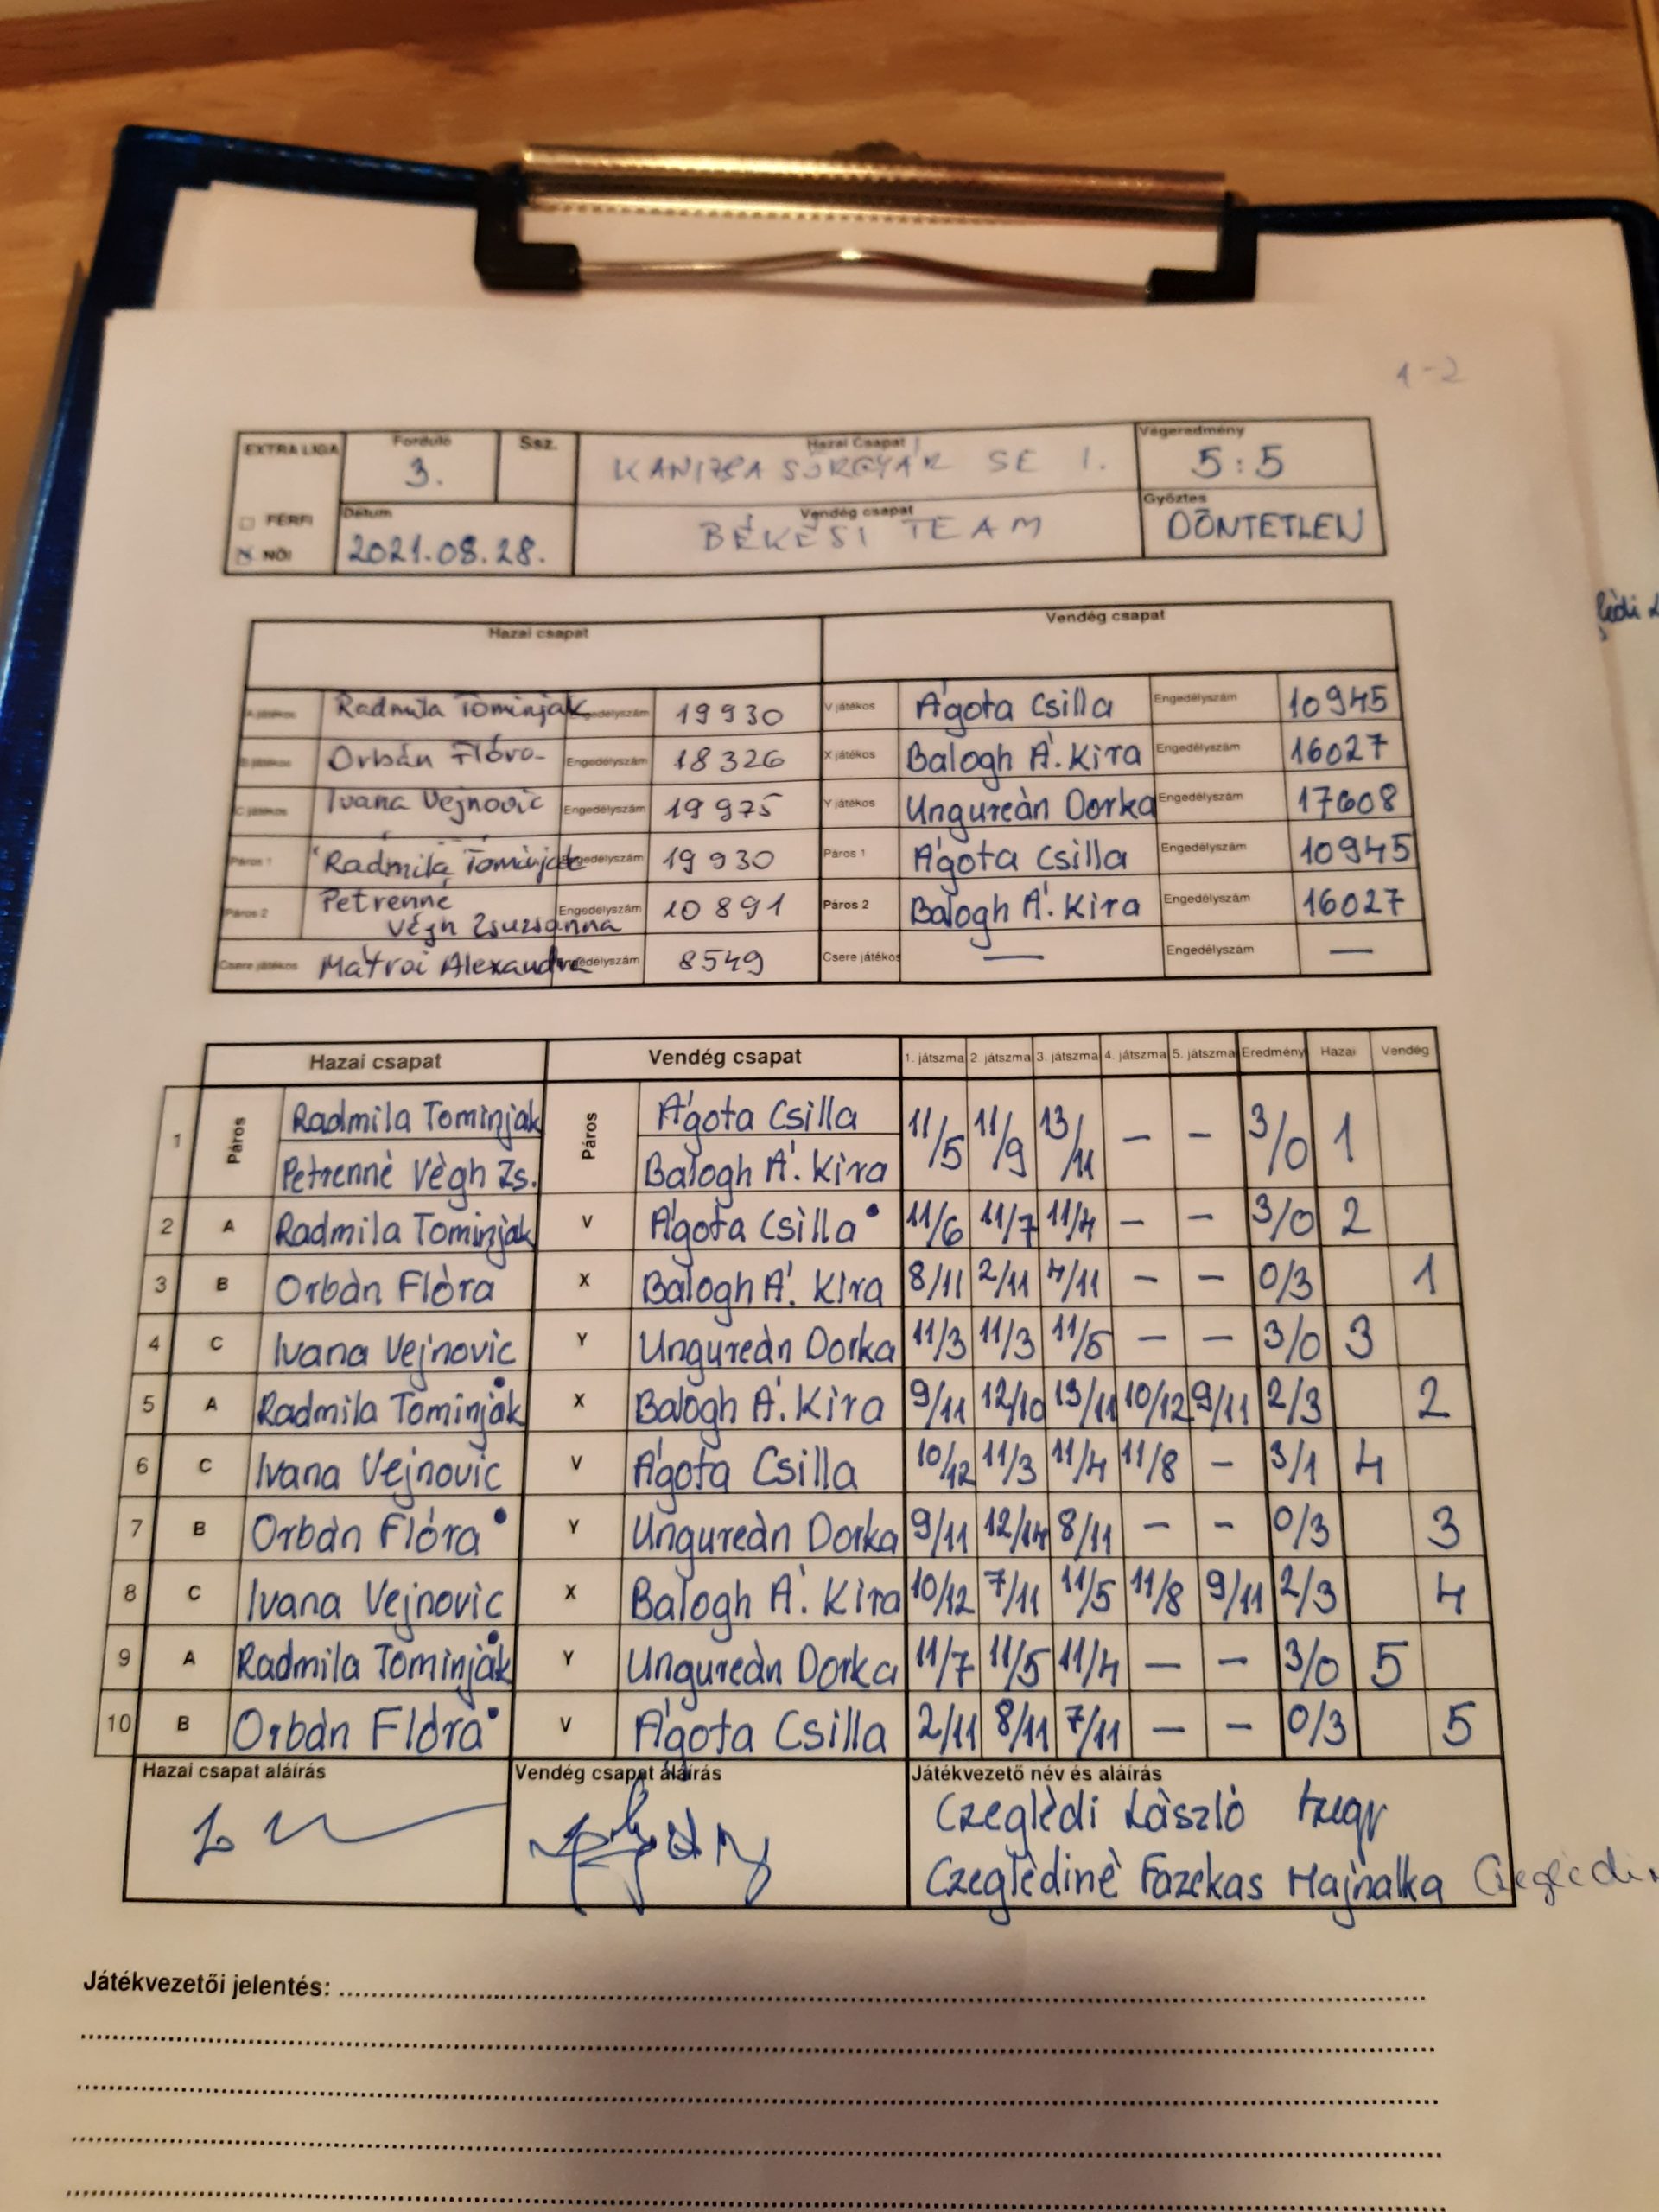 1-2
EXTRA LIGA Forduló Ssz. Hazai Csapat Végeredmény
3. KANIZSA SÖRGYÁR SE I. 5:5
□ FÉRFI Dátum Vendég csapat Győztes
☒ NŐI 2021.08.28. BÉKÉSI TEAM DÖNTETLEN
Hazai csapat Vendég csapat
A játékos Radmila Tominjak Engedélyszám 19930 V játékos Ágota Csilla Engedélyszám 10945
B játékos Orbán Flóra Engedélyszám 18326 X játékos Balogh Á. Kira Engedélyszám 16027
C játékos Ivana Vejnovic Engedélyszám 19975 Y játékos Ungureàn Dorka Engedélyszám 17608
Páros 1 Radmila Tominjak Engedélyszám 19930 Páros 1 Ágota Csilla Engedélyszám 10945
Páros 2 Petrenné Végh Zsuzsanna Engedélyszám 10891 Páros 2 Balogh Á. Kira Engedélyszám 16027
Csere játékos Mátrai Alexandra Engedélyszám 8549 Csere játékos — Engedélyszám —
Hazai csapat Vendég csapat 1. játszma 2. játszma 3. játszma 4. játszma 5. játszma Eredmény Hazai Vendég
1 Páros Radmila Tominjak Páros Ágota Csilla 11/5 11/9 13/11 — — 3/0 1
Petrennè Vègh Zs. Balogh Á. Kira
2 A Radmila Tominjak V Ágota Csilla• 11/6 11/7 11/4 — — 3/0 2
3 B Orbàn Flòra X Balogh Á. Kira 8/11 2/11 4/11 — — 0/3 1
4 C Ivana Vejnovic Y Ungureàn Dorka 11/3 11/3 11/5 — — 3/0 3
5 A Radmila Tominjak• X Balogh Á. Kira 9/11 12/10 13/11 10/12 9/11 2/3 2
6 C Ivana Vejnovic V Ágota Csilla 10/12 11/3 11/4 11/8 — 3/1 4
7 B Orbàn Flóra• Y Ungureàn Dorka 9/11 12/14 8/11 — — 0/3 3
8 C Ivana Vejnovic X Balogh Á. Kira 10/12 7/11 11/5 11/8 9/11 2/3 4
9 A Radmila Tominjak• Y Ungureàn Dorka 11/7 11/5 11/4 — — 3/0 5
10 B Orbàn Flóra• V Ágota Csilla 2/11 8/11 7/11 — — 0/3 5
Hazai csapat aláírás Vendég csapat aláírás Játékvezető név és aláírás
Czeglèdi Làszlò
Czeglèdinè Fazekas Hajnalka
Játékvezetői jelentés: